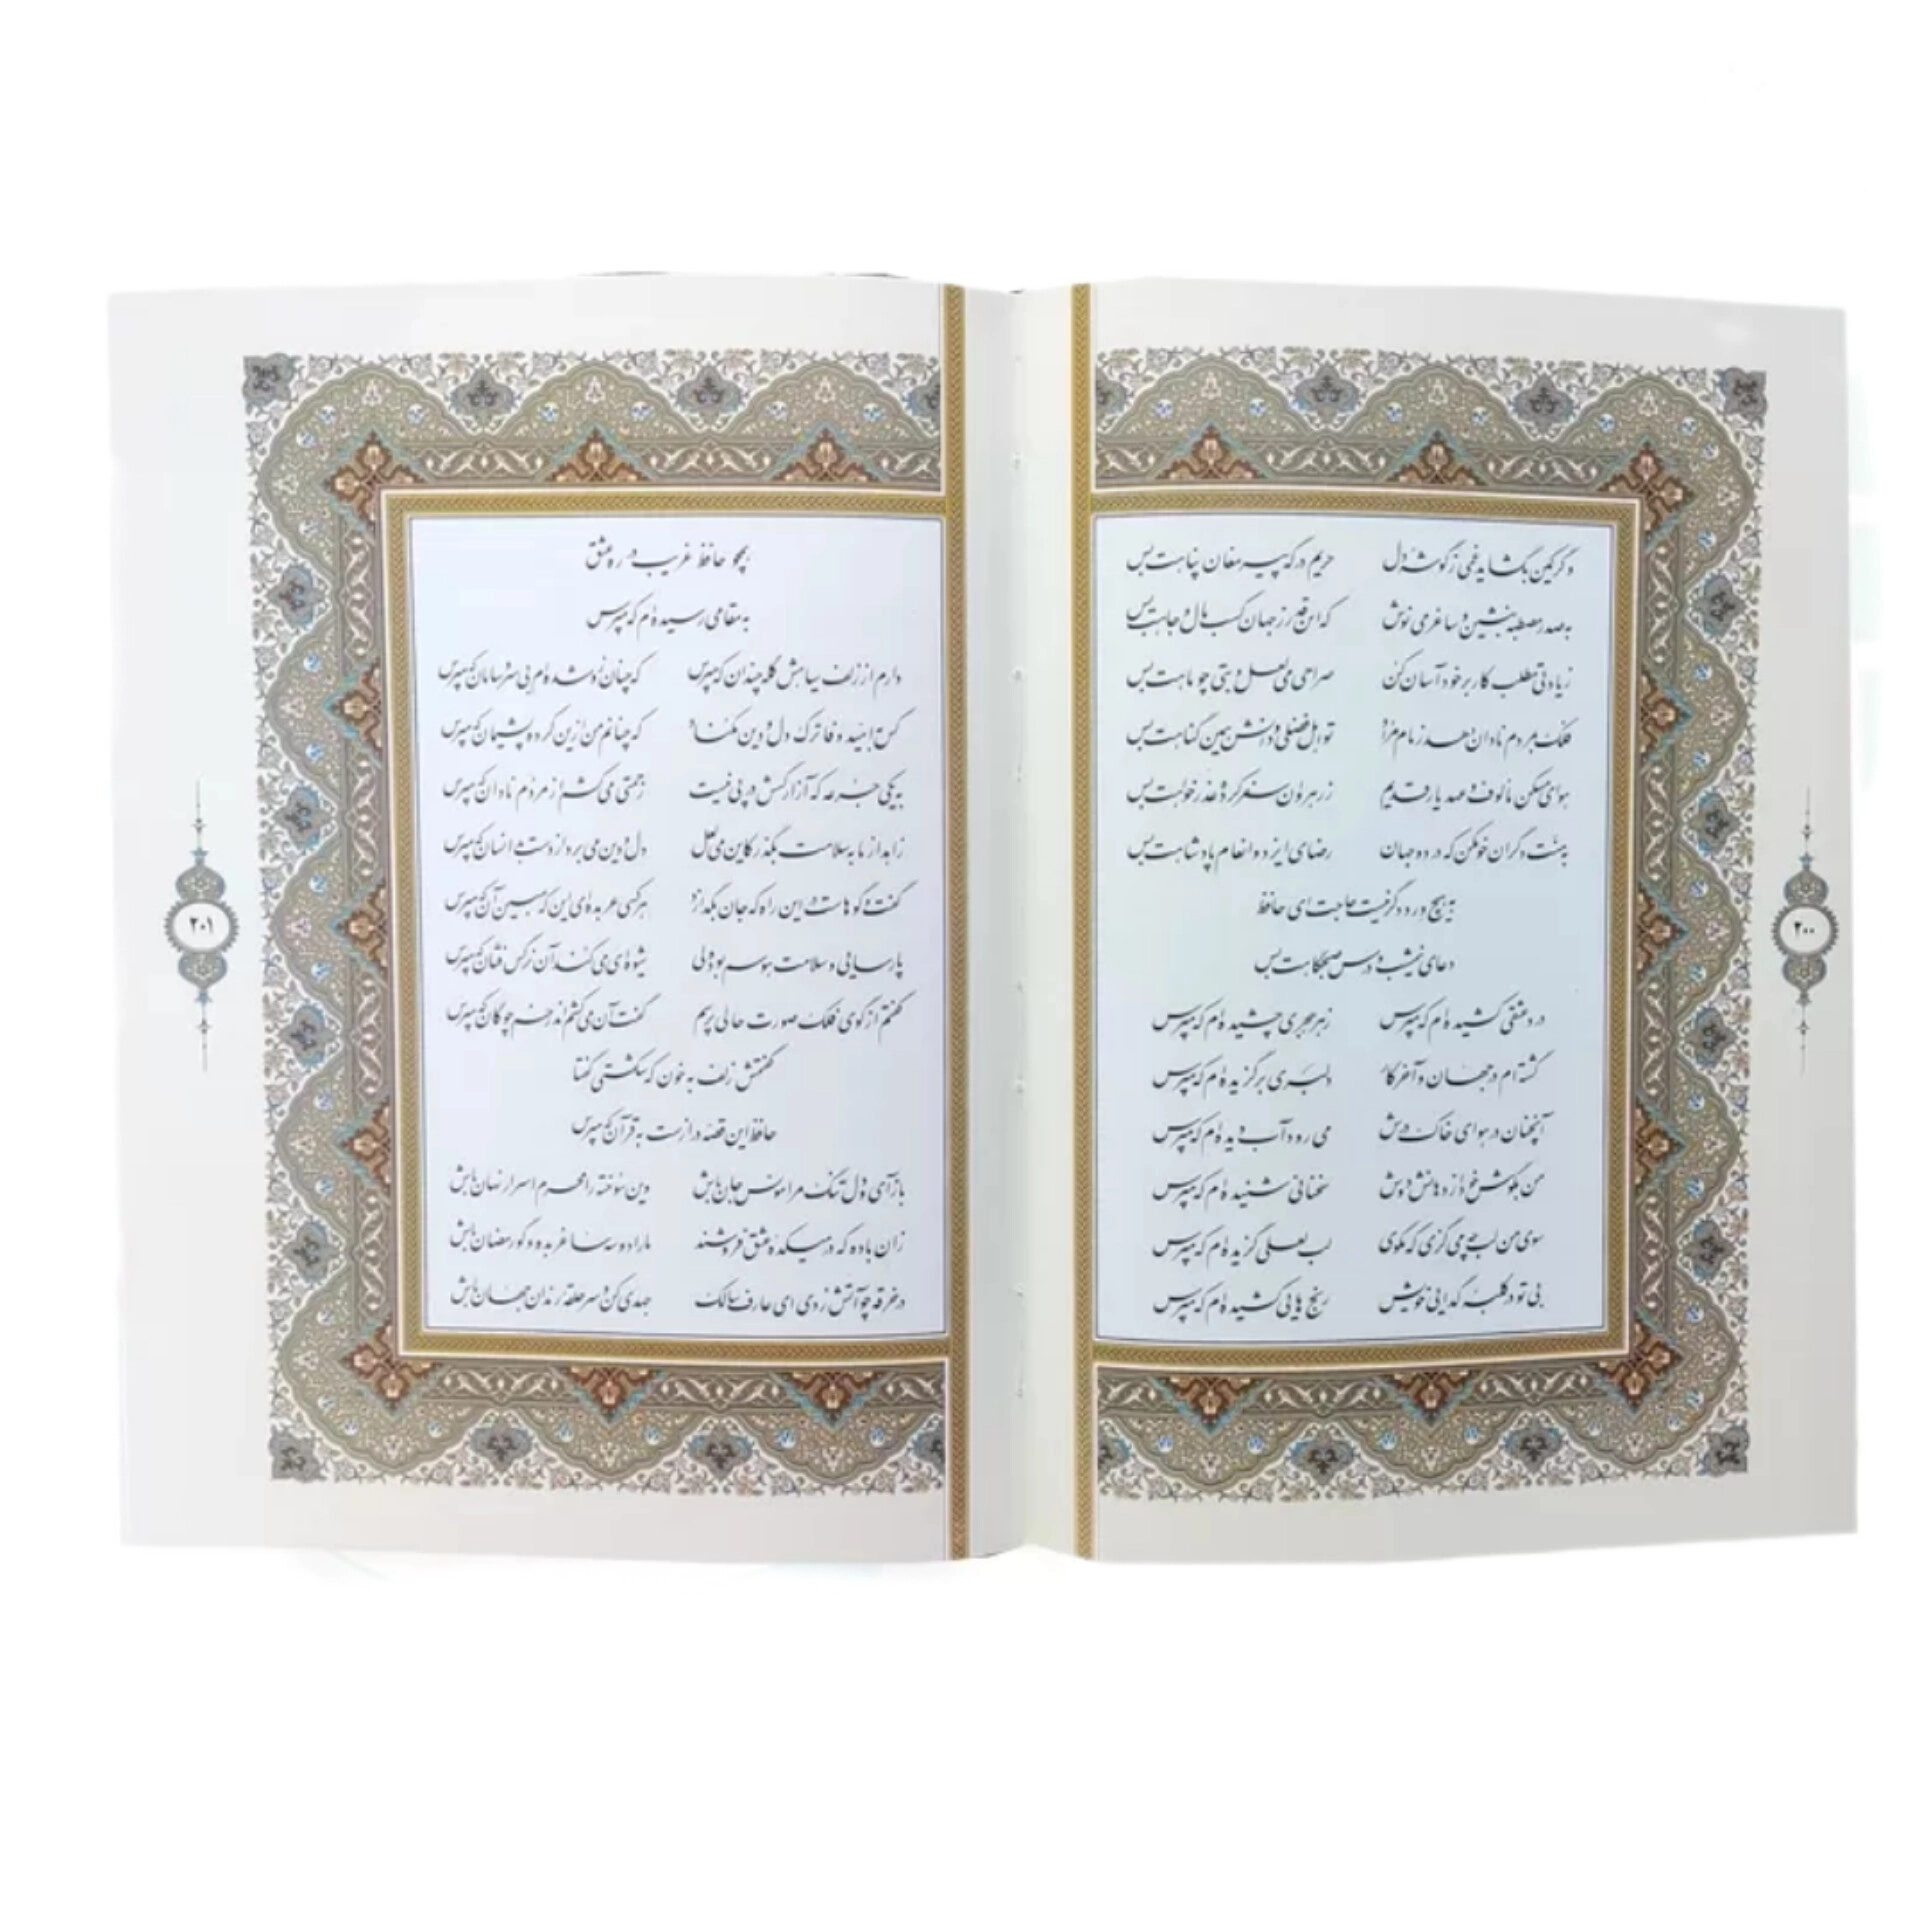 وگر کمین بگشاید غمی ز گوشه دل حریم درگه پیر مغان پناهت بس
به صدر مصطبه بنشین و ساغر می نوش که این قدر ز جهان کسب مال و جاهت بس
زیادتی مطلب کار بر خود آسان کن صراحی می لعل و بتی چو ماهت بس
فلک به مردم نادان دهد زمام مراد تو اهل فضلی و دانش همین گناهت بس
هوای مسکن مألوف و عهد یار قدیم ز رهروان سفرکرده عذرخواهت بس
به منت دگران خو مکن که در دو جهان رضای ایزد و انعام پادشاهت بس
به هیچ ورد دگر نیست حاجت ای حافظ
دعای نیم شب و درس صبحگاهت بس
درد عشقی کشیده‌ام که مپرس زهر هجری چشیده‌ام که مپرس
گشته‌ام در جهان و آخر کار دلبری برگزیده‌ام که مپرس
آنچنان در هوای خاک درش می‌رود آب دیده‌ام که مپرس
من به گوش خود از دهانش دوش سخنانی شنیده‌ام که مپرس
سوی من لب چه می‌گزی که مگوی لب لعلی گزیده‌ام که مپرس
بی تو در کلبه گدایی خویش رنج‌هایی کشیده‌ام که مپرس
۲۰۰
همچو حافظ غریب در ره عشق
به مقامی رسیده‌ام که مپرس
دارم از زلف سیاهش گله چندان که مپرس که چنان زو شده‌ام بی سر و سامان که مپرس
کس به امید وفا ترک دل و دین مکناد که چنانم من از این کرده پشیمان که مپرس
به یکی جرعه که آزار کسش در پی نیست زحمتی می‌کشم از مردم نادان که مپرس
زاهد از ما به سلامت بگذر کاین می لعل دل و دین می‌برد از دست بدانسان که مپرس
گفت‌وگوهاست در این راه که جان بگدازد هر کسی عربده‌ای این که مبین آن که مپرس
پارسایی و سلامت هوسم بود ولی شیوه‌ای می‌کند آن نرگس فتان که مپرس
گفتم از گوی فلک صورت حالی پرسم گفت آن می‌کشم اندر خم چوگان که مپرس
گفتمش زلف به خون که شکستی گفتا
حافظ این قصه دراز است به قرآن که مپرس
بازآی و دل تنگ مرا مونس جان باش وین سوخته را محرم اسرار نهان باش
زان باده که در میکده عشق فروشند ما را دو سه ساغر بده و گو رمضان باش
در خرقه چو آتش زدی ای عارف سالک جهدی کن و سرحلقه رندان جهان باش
۲۰۱